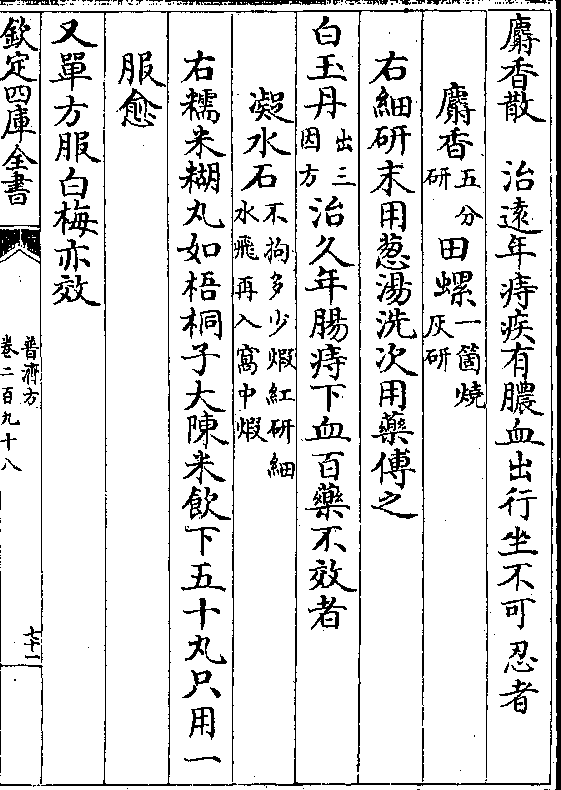 麝香散　治遠年痔疾有膿血出行坐不可忍者
麝香五分研田螺一箇燒灰研
右細研末用葱湯洗次用藥傅之
白玉丹出三因方治久年腸痔下血百藥不效者
凝水石不拘多少煅紅研細水飛再入窩中煅
右糯米糊丸如梧桐子大陳米飲下五十丸只用一
服愈
又單方服白梅亦效
欽定四庫全書
普濟方
卷二百九十八
七十一